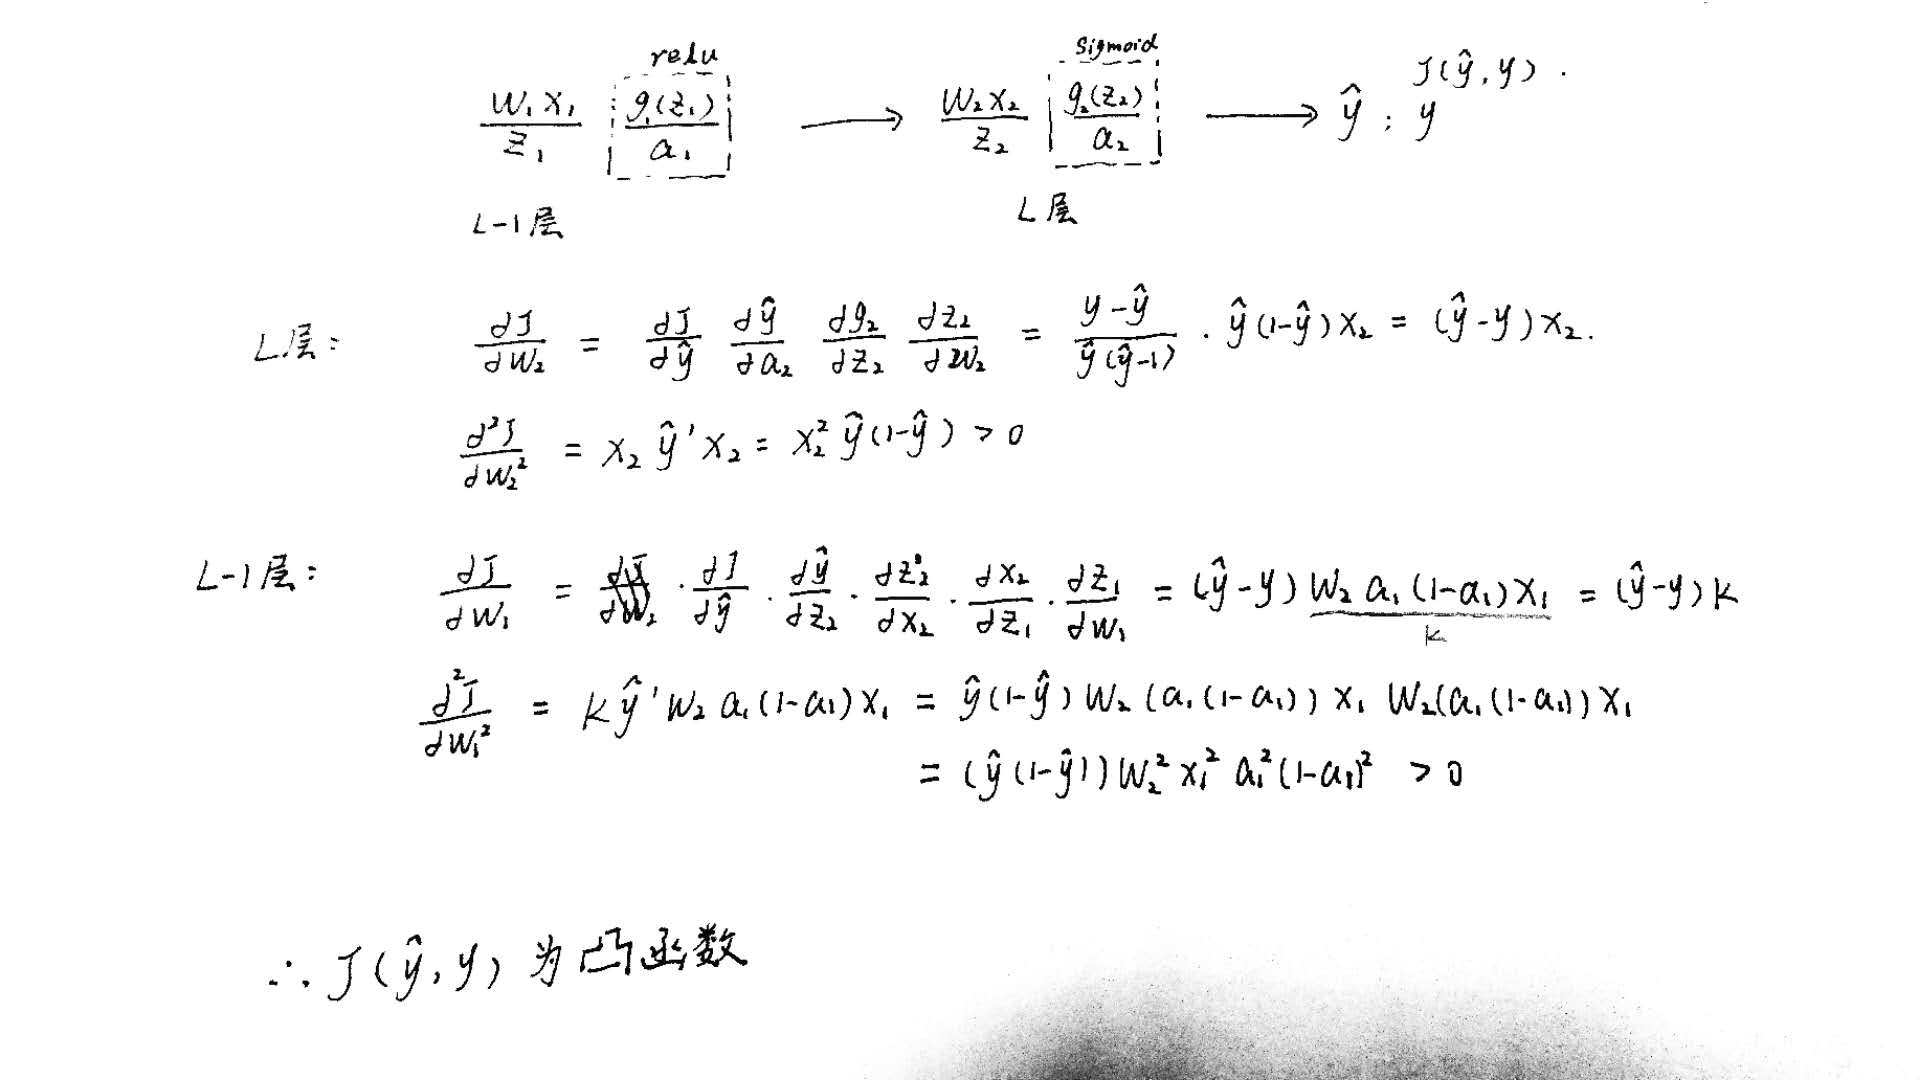 relu
Sigmoid
W₁X₁/Z₁ g₁(Z₁)/a₁ → W₂X₂/Z₂ g₂(Z₂)/a₂ → ŷ : y J(ŷ, y).
L-1层
L层
L层: dJ/dW₂ = dJ/dŷ dŷ/da₂ dg₂/dZ₂ dZ₂/dW₂ = (y-ŷ)/(ŷ(ŷ-1)) · ŷ(1-ŷ)X₂ = (ŷ-y)X₂.
d²J/dW₂² = X₂ŷ'X₂ = X₂²ŷ(1-ŷ) > 0
L-1层: dJ/dW₁ = · dJ/dŷ · dŷ/dZ₂ · dZ₂/dX₂ · dX₂/dZ₁ · dZ₁/dW₁ = (ŷ-y)W₂a₁(1-a₁)X₁ = (ŷ-y)k
k
d²J/dW₁² = kŷ'W₂a₁(1-a₁)X₁ = ŷ(1-ŷ)W₂(a₁(1-a₁))X₁ W₂(a₁(1-a₁))X₁
= (ŷ(1-ŷ))W₂²X₁²a₁²(1-a₁)² > 0
∴ J(ŷ, y) 为凸函数